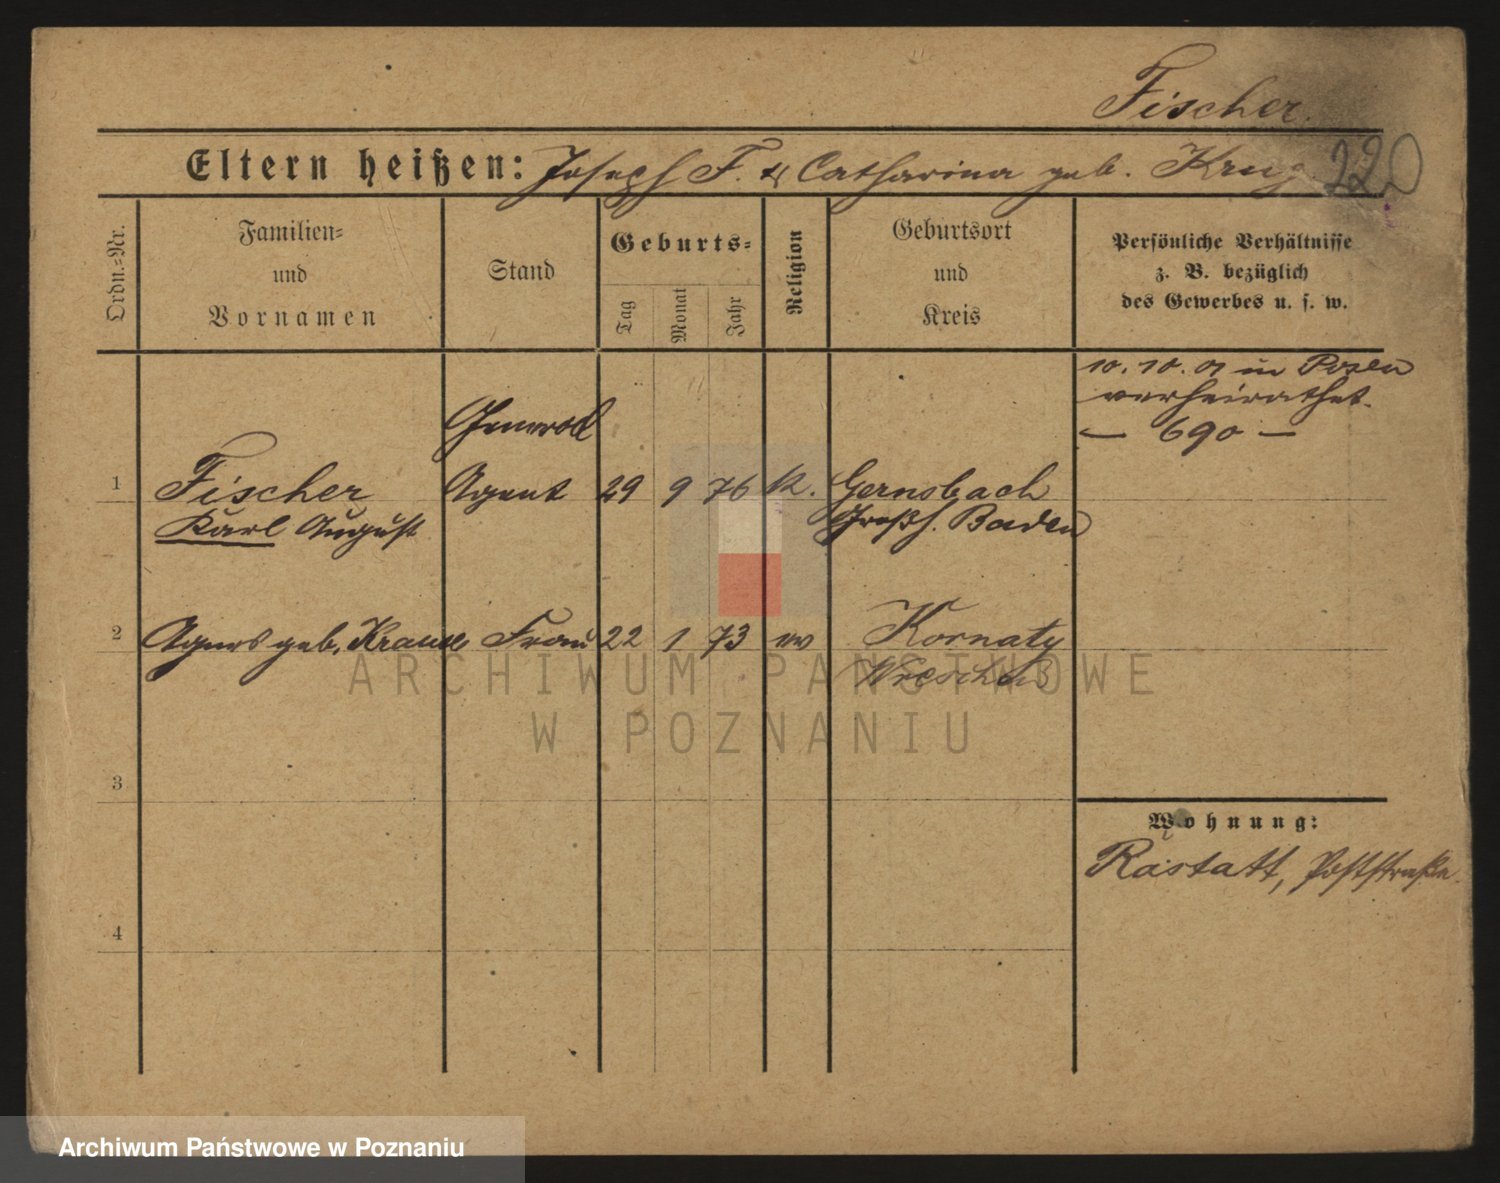 Fischer.
Eltern heißen: Joseph F. & Catharina geb. Krug
220
Ordn.=Nr.
Familien=
und
Vornamen
Stand
Geburts=
Tag
Monat
Jahr
Religion
Geburtsort
und
Kreis
Persönliche Verhältnisse
z. B. bezüglich
des Gewerbes u. s. w.
10. 10. 01 in Posen
verheirathet.
— 690 —
General
1 Fischer Agent 29 9 76 k. Gernsbach
Karl August Großh. Baden
2 Agnes geb. Krause Frau 22 1 73 ev Kornaty
Wreschen
ARCHIWUM PAŃSTWOWE
W POZNANIU
3
Wohnung:
Rastatt, Poststraße.
4
Archiwum Państwowe w Poznaniu